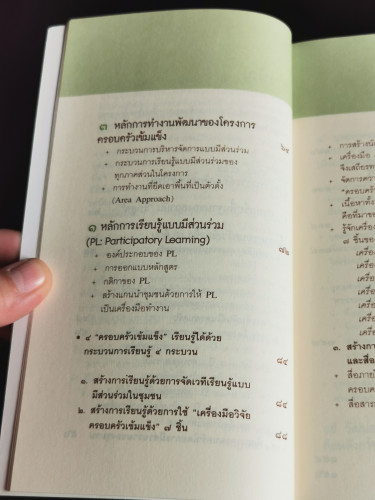 ๓ หลักการทำงานพัฒนาของโครงการ
ครอบครัวเข้มแข็ง ๖๙
• กระบวนการบริหารจัดการแบบมีส่วนร่วม
• กระบวนการเรียนรู้แบบมีส่วนร่วมของ
ทุกภาคส่วนในโครงการ
• การทำงานที่ยึดเอาพื้นที่เป็นตัวตั้ง
(Area Approach)
๑ หลักการเรียนรู้แบบมีส่วนร่วม
(PL: Participatory Learning) ๗๖
• องค์ประกอบของ PL
• การออกแบบหลักสูตร
• กติกาของ PL
• สร้างแกนนำชุมชนด้วยการให้ PL
เป็นเครื่องมือทำงาน
• ๔ "ครอบครัวเข้มแข็ง" เรียนรู้ได้ด้วย
กระบวนการเรียนรู้ ๔ กระบวน ๘๔
๑. สร้างการเรียนรู้ด้วยการจัดเวทีเรียนรู้แบบ
มีส่วนร่วมในชุมชน ๘๔
๒. สร้างการเรียนรู้ด้วยการใช้ "เครื่องมือวิจัย
ครอบครัวเข้มแข็ง" ๗ ชิ้น ๘๘
• การสร้างนัก
• เครื่องมือ
จึงเสถียร
• จัดการควา
"ครอบครั
• เนื้อหาทั้ง
คือที่มาขอ
• รู้จักเครื่อง
๘ ชิ้นของ
เครื่อง
เครื่อง
เครื่อง
เครื่อง
เครื่อง
เครื่อง
เครื่อง
๓. สร้างกา
และสื่อ
• สื่อภายใ
ครอบคร
• สื่อสาร